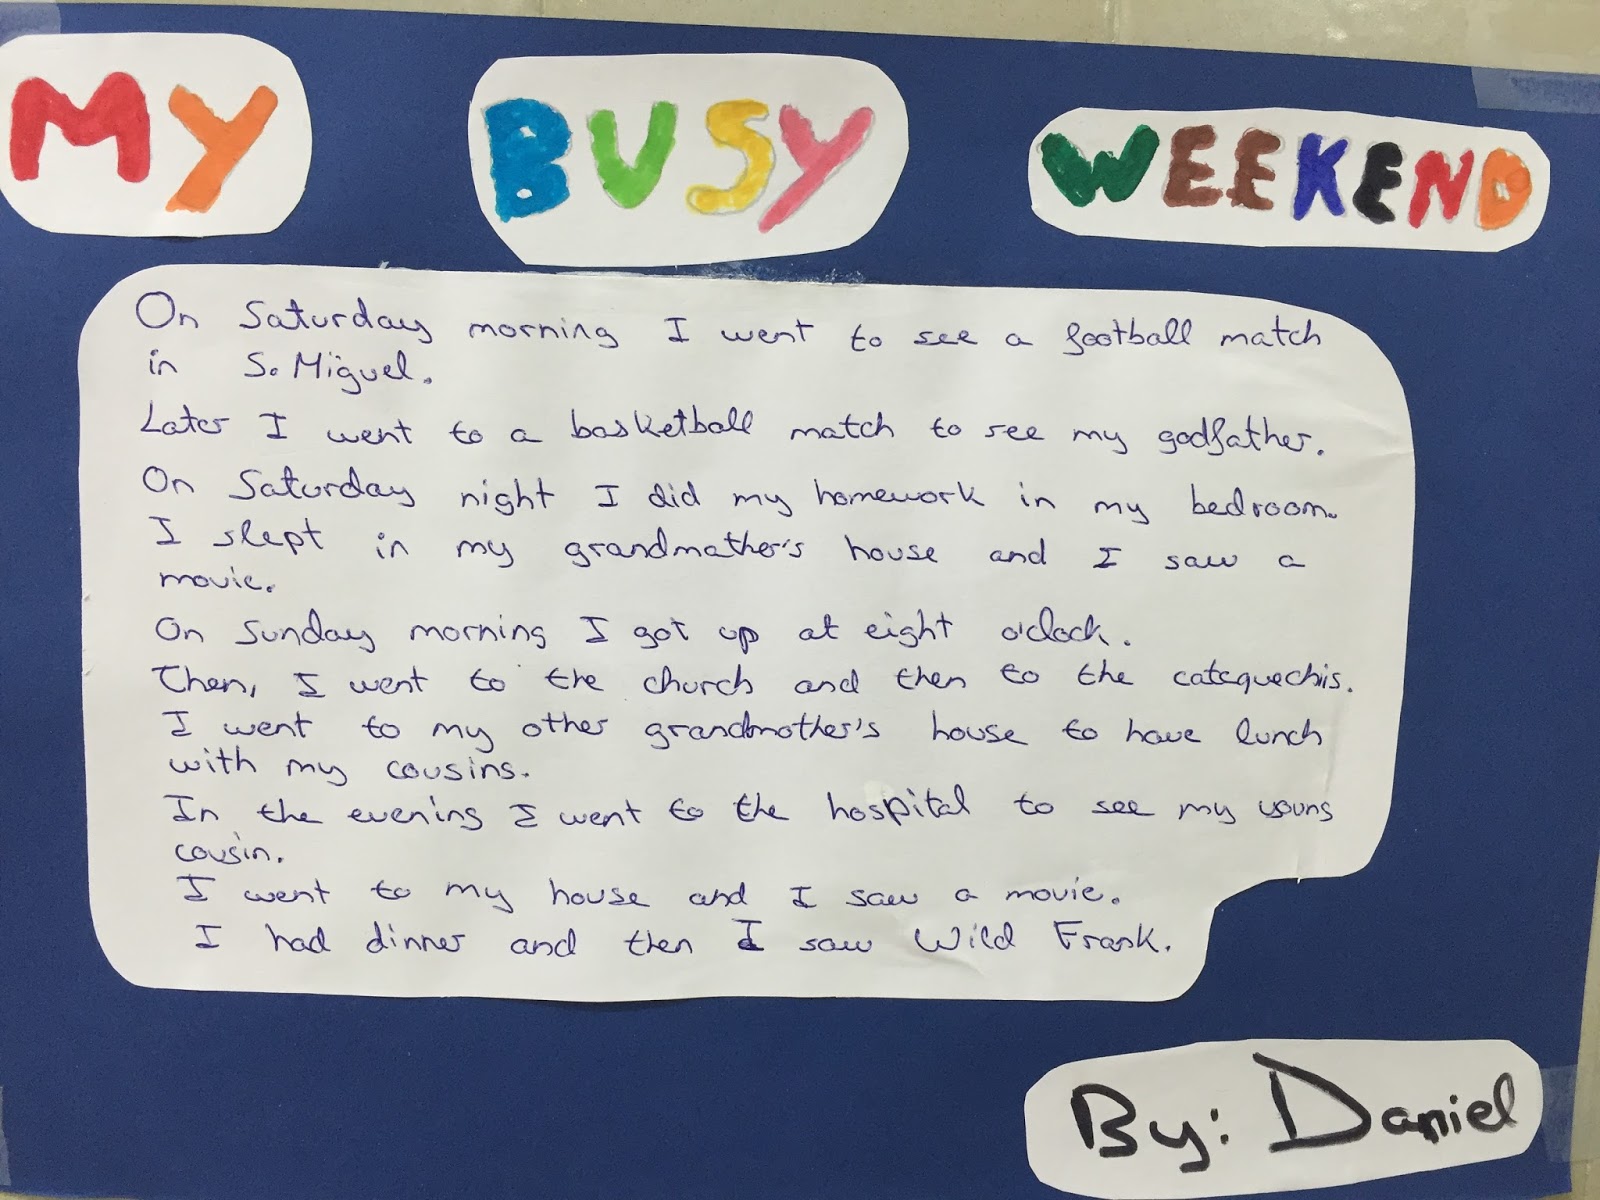 MY BUSY WEEKEND
On Saturday morning I went to see a football match
in S. Miguel.
Later I went to a basketball match to see my godfather.
On Saturday night I did my homework in my bedroom.
I slept in my grandmather's house and I saw a
movie.
On Sunday morning I got up at eight o'clock.
Then, I went to the church and then to the catequechis.
I went to my other grandmother's house to have lunch
with my cousins.
In the evening I went to the hospital to see my young
cousin.
I went to my house and I saw a movie.
I had dinner and then I saw Wild Frank.
By: Daniel